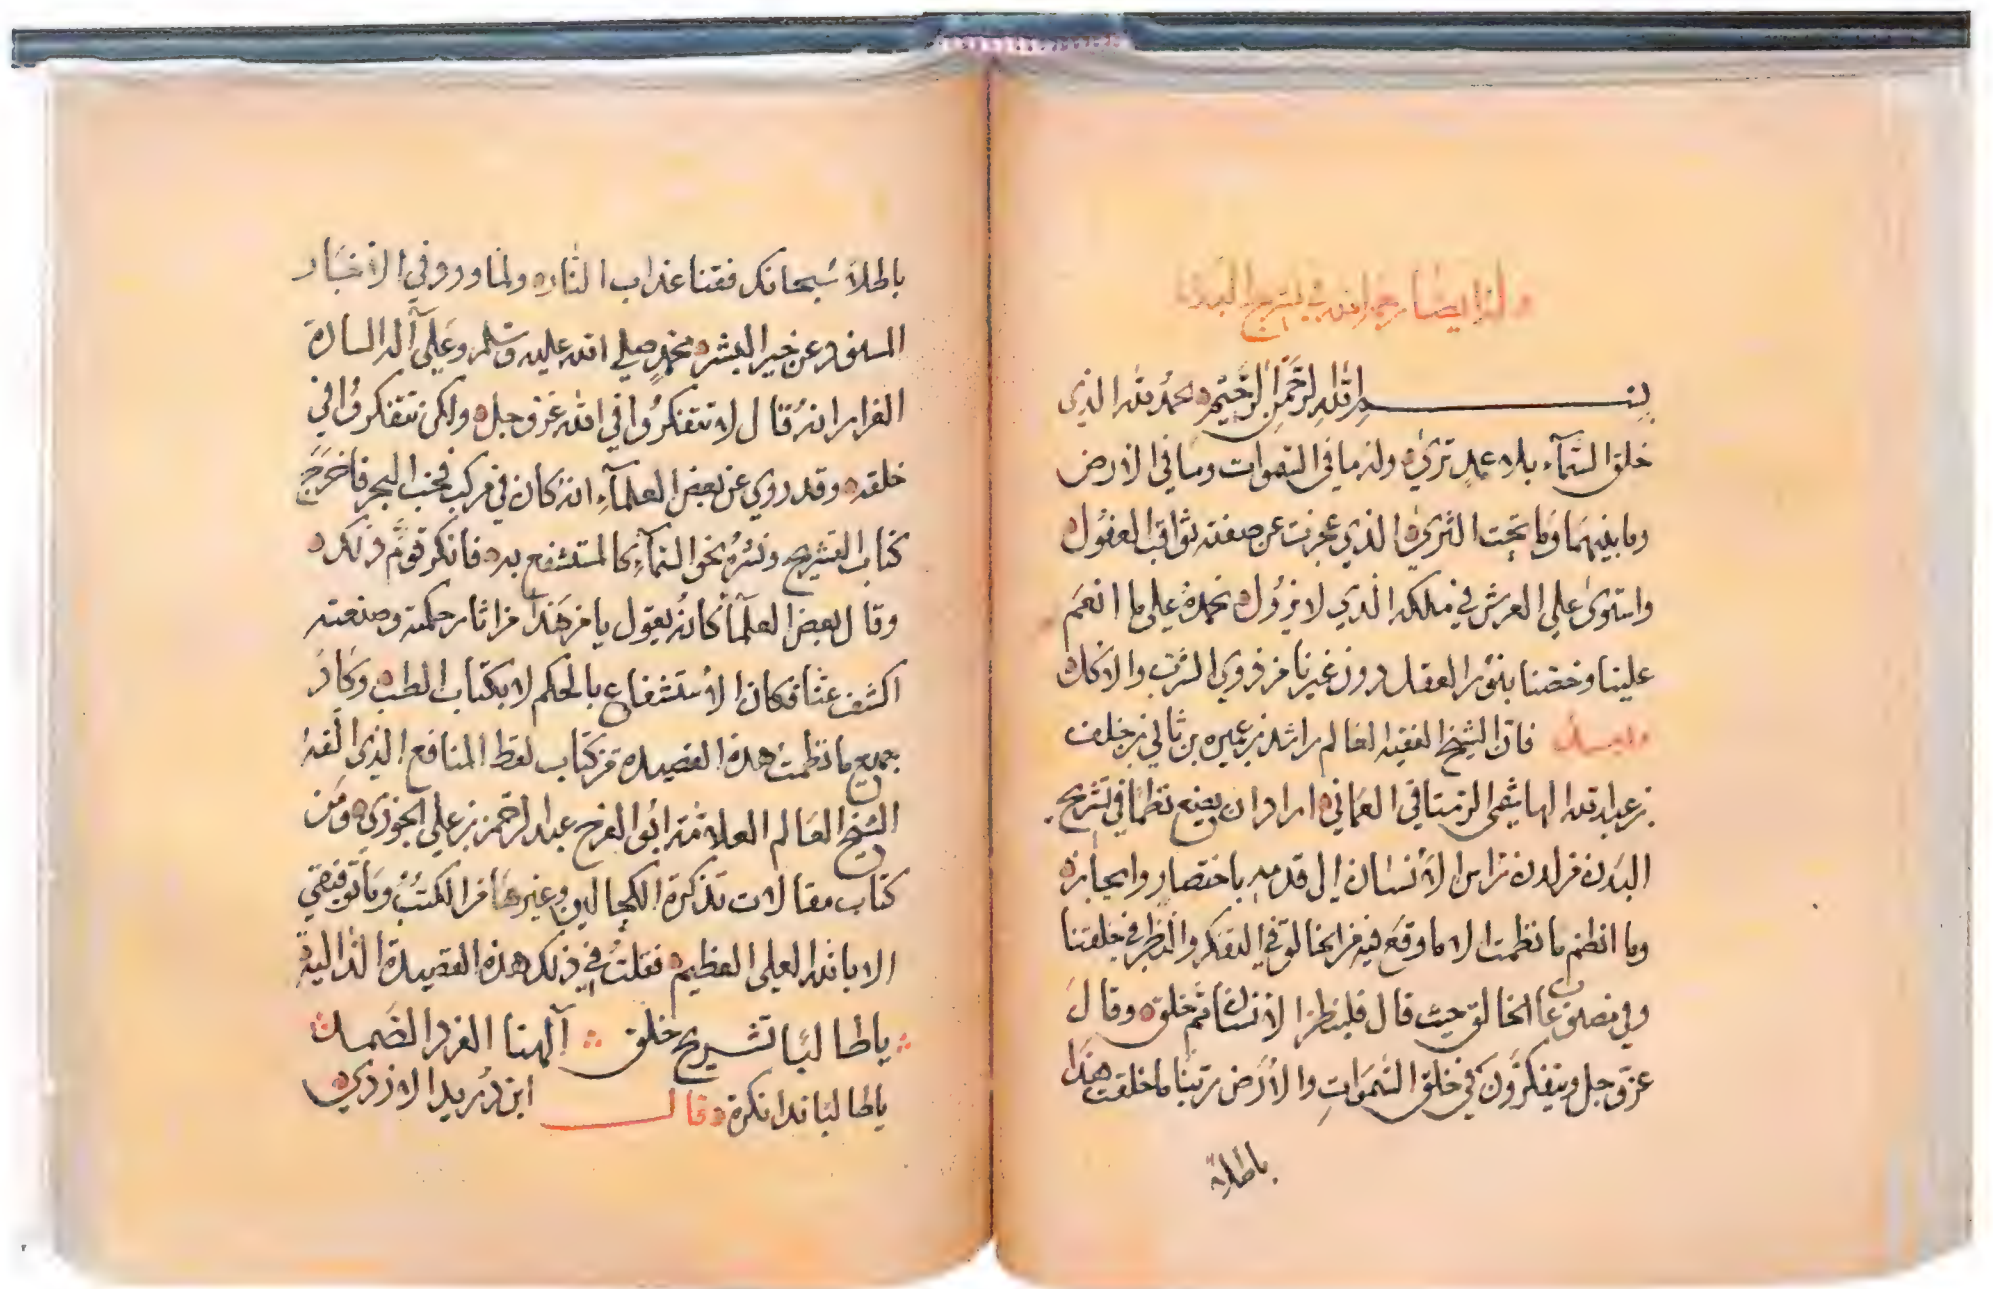 وله ايضا رحمه الله في تشريح البدن
بسم الله الرحمن الرحيم الحمد لله الذي
خلق السَّمآء بلا عمدٍ تُرى وله ما في السموات وما في الارض
وما بينهما وما تحت الثرى الذي عجزت عن صفته ثواقب العقول
واستوى على العرش في ملكه الذي لا يزول نحمدهُ على ما انعم
علينا وخصّنا بنور العقل دون غيرنا من ذوي الشرب والاكل
وبعد فان الشيخ الفقيه العالم راشد بن عميره بن ثاني بن خلف
بن عبد الله الهاشمي الرستاقي العماني اراد ان يصنع نظمًا في تشريح
البدن من لدن راس الانسان الى قدميه باختصار وايجاز
وما انظم ما نظمت الا ما وقع فيه من الخالق في التفكر والنظر في خلقتنا
وفي مصنوعات الخالق حيث قال فلينظر الانسان مم خلق وقال
عزّ وجل ويتفكَّرون في خلق السَّموَاتِ والأرض ربَّنا ما خلقت هذا
باطلا
باطلاً سُبحانك فقنا عذاب النار ولما ورد في الاخبار
المسنودة عن خير البشر محمدٍ صلى الله عليه وسلم وعلى آله السادة
الغرر انه قال لا تتفكرُوا في الله عز وجل ولكن تتفكروا في
خلقه وقد روي عن بعض العلمآء انه كان في مركب فخب البحر فاخرَج
كتاب التشريح ونشرهُ نحو السمآءِ كالمستشفع به فانكر قومٌ ذلك
وقال بعض العلمآء كانه يقول يا من هذا من اثار حكمته وصنعته
اكشف عنّا فكان الاستشفاع بالحكم لا بكتاب الطب وكان
جميع ما نظمت هذه القصيدة من كتاب لقط المنافع الذي الفهُ
الشيخ العالم العلامة ابُو الفرج عبد الرحمن بن علي الجوزي ومن
كتاب مقالات تذكرة الكحالين وغيرها من الكتب وما توفيقي
الا بالله العلي العظيم فقلتُ في ذلك هذه القصيدة الدالية
يا طالبًا تشريح خلق آلهنا الفرد الصمد
يا طالبًا نداء نكرة وقال ابن دُريد الازدي